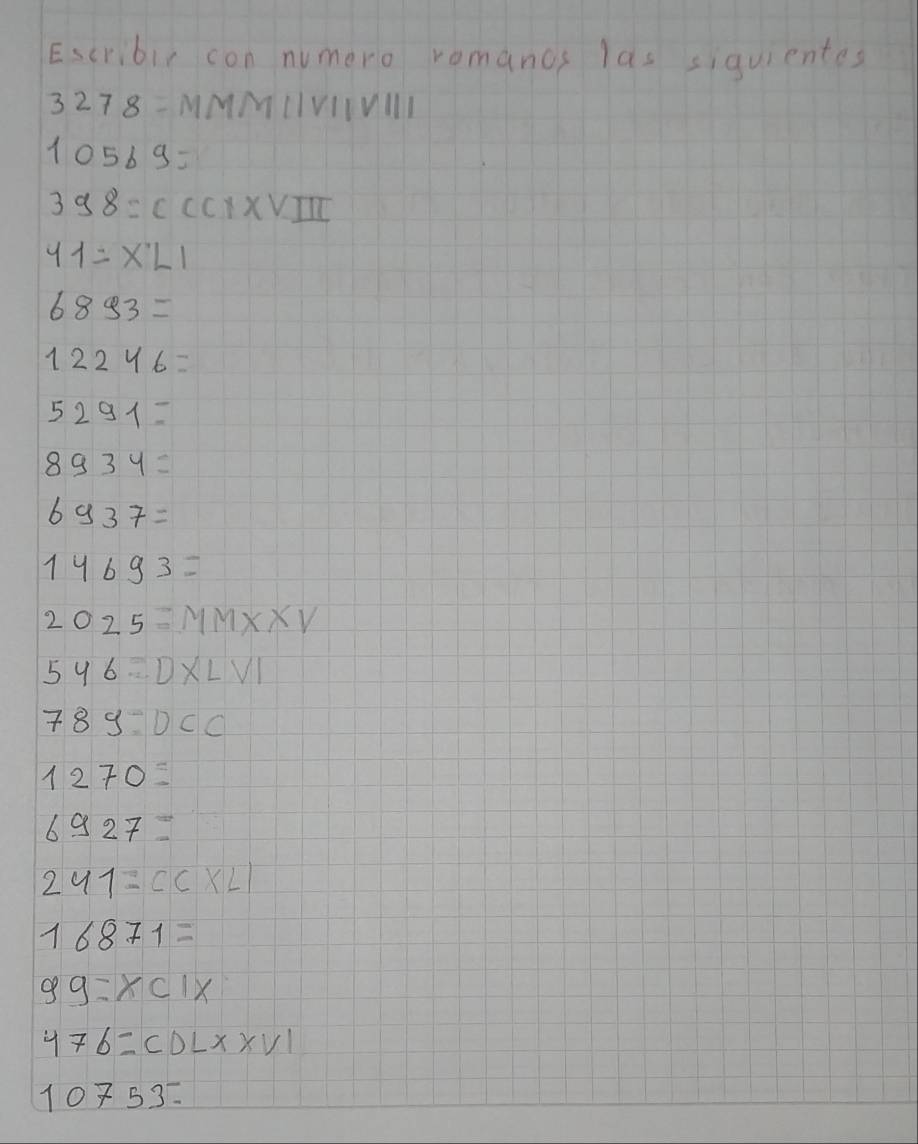 Escribir con numero romanos las siguientes
3278=MMMIIVIIVIII
10569=
398=CCCXXVIII
41=XLI
6893=
12246=
5291=
8934=
6937=
14693=
2025=MMXXV
546=DXLVI
789=DCC
1270=
6927=
241=CCXLI
16871=
99=XCIX
476=CDLXXVI
10753=